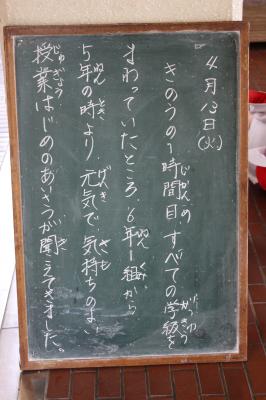 4月13日(火)
きのうの1時間目、すべての学級を
まわっていたところ、6年1組から
5年の時より、元気で、気持ちのよい
授業はじめのあいさつが聞こえてきました。